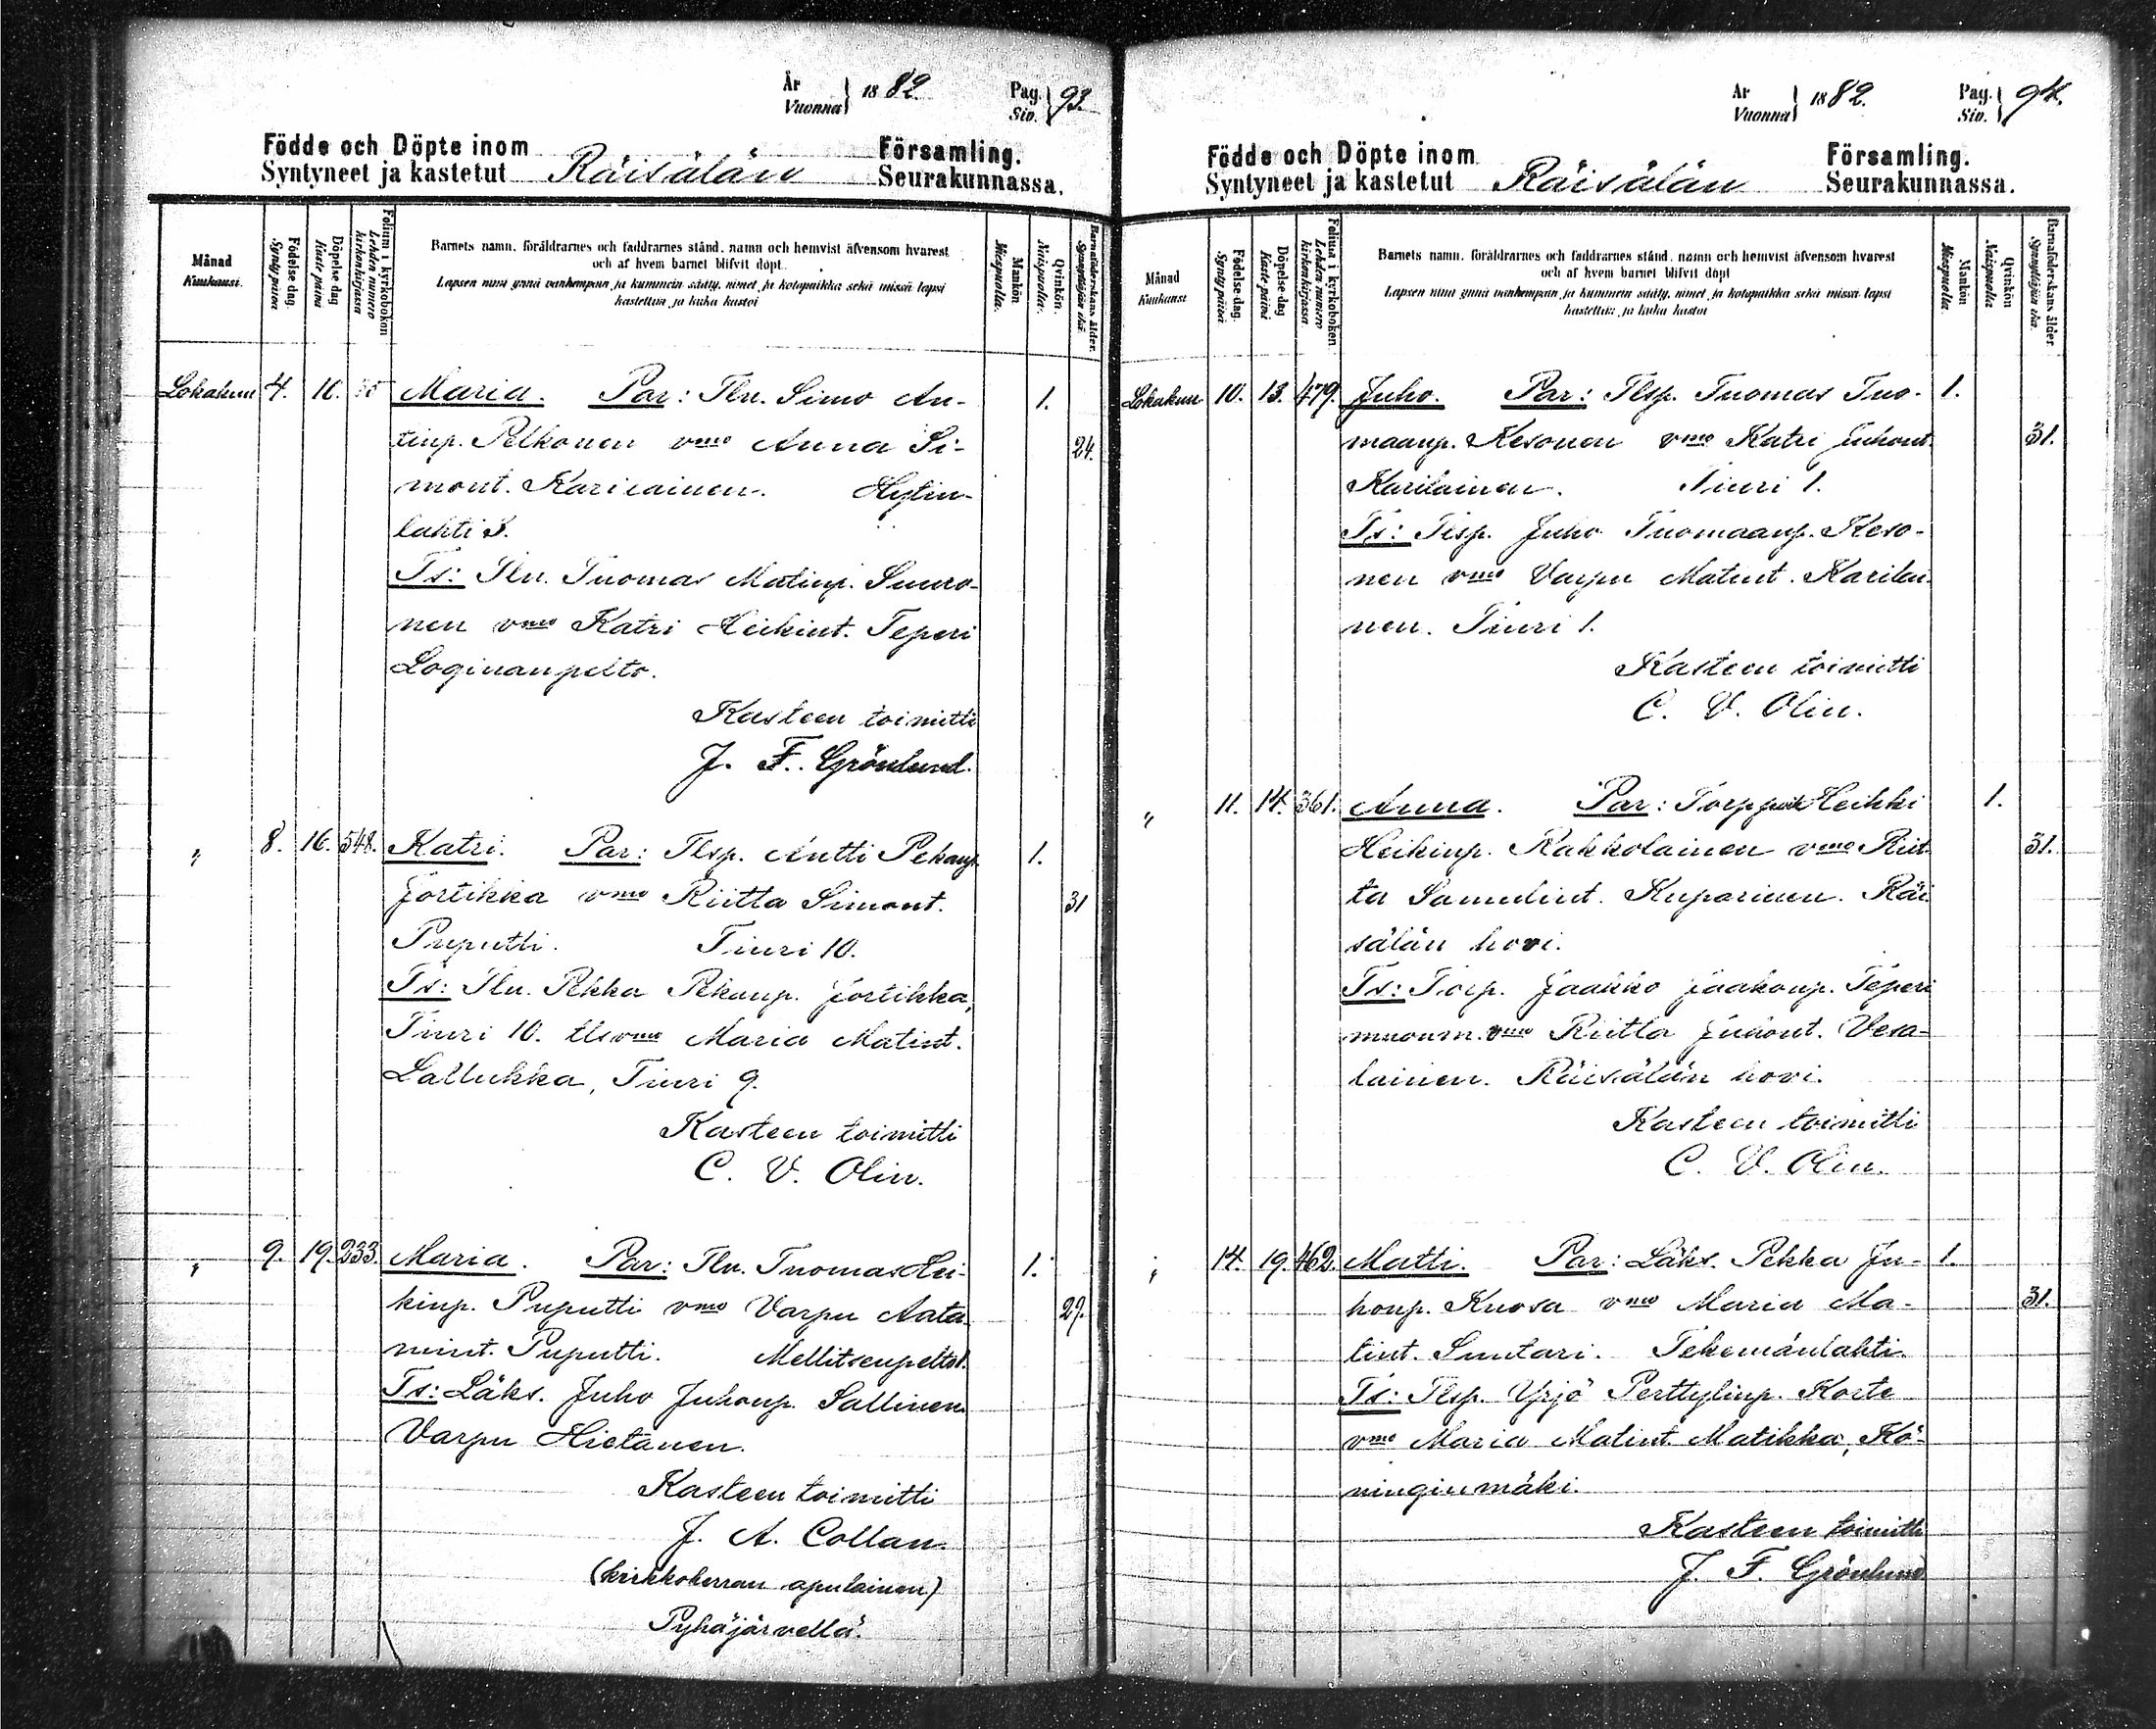 År
Vuonna } 1882. Pag.
Siv. } 93.
Födde och Döpte inom Församling.
Syntyneet ja kastetut Räisälän Seurakunnassa.
Månad
Kuukausi.
Födelse dag.
Synty päivä
Döpelse dag
Kaste päivä
Folium i kyrkoboken
Lehden numero
kirkonkirjassa
Barnets namn, föräldrarnes och faddrarnes stånd, namn och hemvist äfvensom hvarest
och af hvem barnet blifvit döpt.
Lapsen nimi ynnä vanhempain ja kummein sääty, nimet ja kotopaikka sekä missä lapsi
kastettiin ja kuka kastoi
Mankön
Miespuolia.
Qvinkön.
Naispuolia.
Barnaföderskans ålder.
Synnyttäjän ikä.
Lokakuu 4. 16. Maria. Par: Tln. Simo An- 1.
tinp. Pelkonen vmo Anna Si- 24.
mont. Karilainen. Hytin-
lahti 3.
Ts: Tln. Tuomas Matinp. Suuro-
nen vmo Katri Heikint. Teperi
Loginanpelto.
Kasteen toimitti
J. F. Grönlund.
" 8. 16. 548. Katri. Par: Tlsp. Antti Pekanp. 1.
Jortikka vmo Riitta Simont. 31
Puputti. Tiuri 10.
Ts: Tln. Pekka Pekanp. Jortikka,
Tiuri 10. tlsvmo Maria Matint.
Lallukka, Tiuri 9.
Kasteen toimitti
C. V. Olin.
" 9. 19. 233. Maria. Par: Tln. Tuomas Hei- 1.
kinp. Puputti vmo Varpu Aata- 29.
mint. Puputti. Mellitsenpelto 1.
Ts: Läks. Juho Juhonp. Sallinen
Varpu Hietanen.
Kasteen toimitti
J. A. Collan.
(kirkkoherran apulainen)
Pyhäjärvellä.
År
Vuonna } 1882. Pag.
Siv. } 94.
Födde och Döpte inom Församling.
Syntyneet ja kastetut Räisälän Seurakunnassa.
Månad
Kuukausi
Födelse dag.
Synty päivä
Döpelse dag
Kaste päivä
Folium i kyrkoboken
Lehden numero
kirkonkirjassa
Barnets namn, föräldrarnes och faddrarnes stånd, namn och hemvist äfvensom hvarest
och af hvem barnet blifvit döpt
Lapsen nimi ynnä vanhempain ja kummein sääty, nimet ja kotopaikka sekä missä lapsi
kastettiin ja kuka kastoi
Mankön
Miespuolia
Qvinkön
Naispuolia
Barnaföderskans ålder
Synnyttäjän ikä.
Lokakuu 10. 13. 479. Juho. Par: Tlsp. Tuomas Tuo- 1.
maanp. Kesonen vmo Katri Juhont. 31.
Karilainen. Tiuri 1.
Ts: Tlsp. Juho Tuomaanp. Keso-
nen vmo Varpu Matint. Karilai-
nen. Tiuri 1.
Kasteen toimitti
C. V. Olin.
" 11. 14. 361. Anna. Par: Heikki 1.
Heikinp. Kakkolainen vmo Riit- 31.
ta Samulint. Kuparinen. Räi-
sälän hovi.
Ts: Torp. Jaakko Jaakonp. Teperi
vmo Riitta Juhont. Vesa-
lainen. Räisälän hovi.
Kasteen toimitti
C. V. Olin.
" 14. 19. 462. Matti. Par: Läks. Pekka Ju- 1.
honp. Kuosa vmo Maria Ma- 31.
tint. Suutari. Tekemänlahti.
Ts: Tlsp. Yrjö Perttylinp. Korte
vmo Maria Matint. Matikka, Kö-
ninginmäki.
Kasteen toimitti
J. F. Grönlund